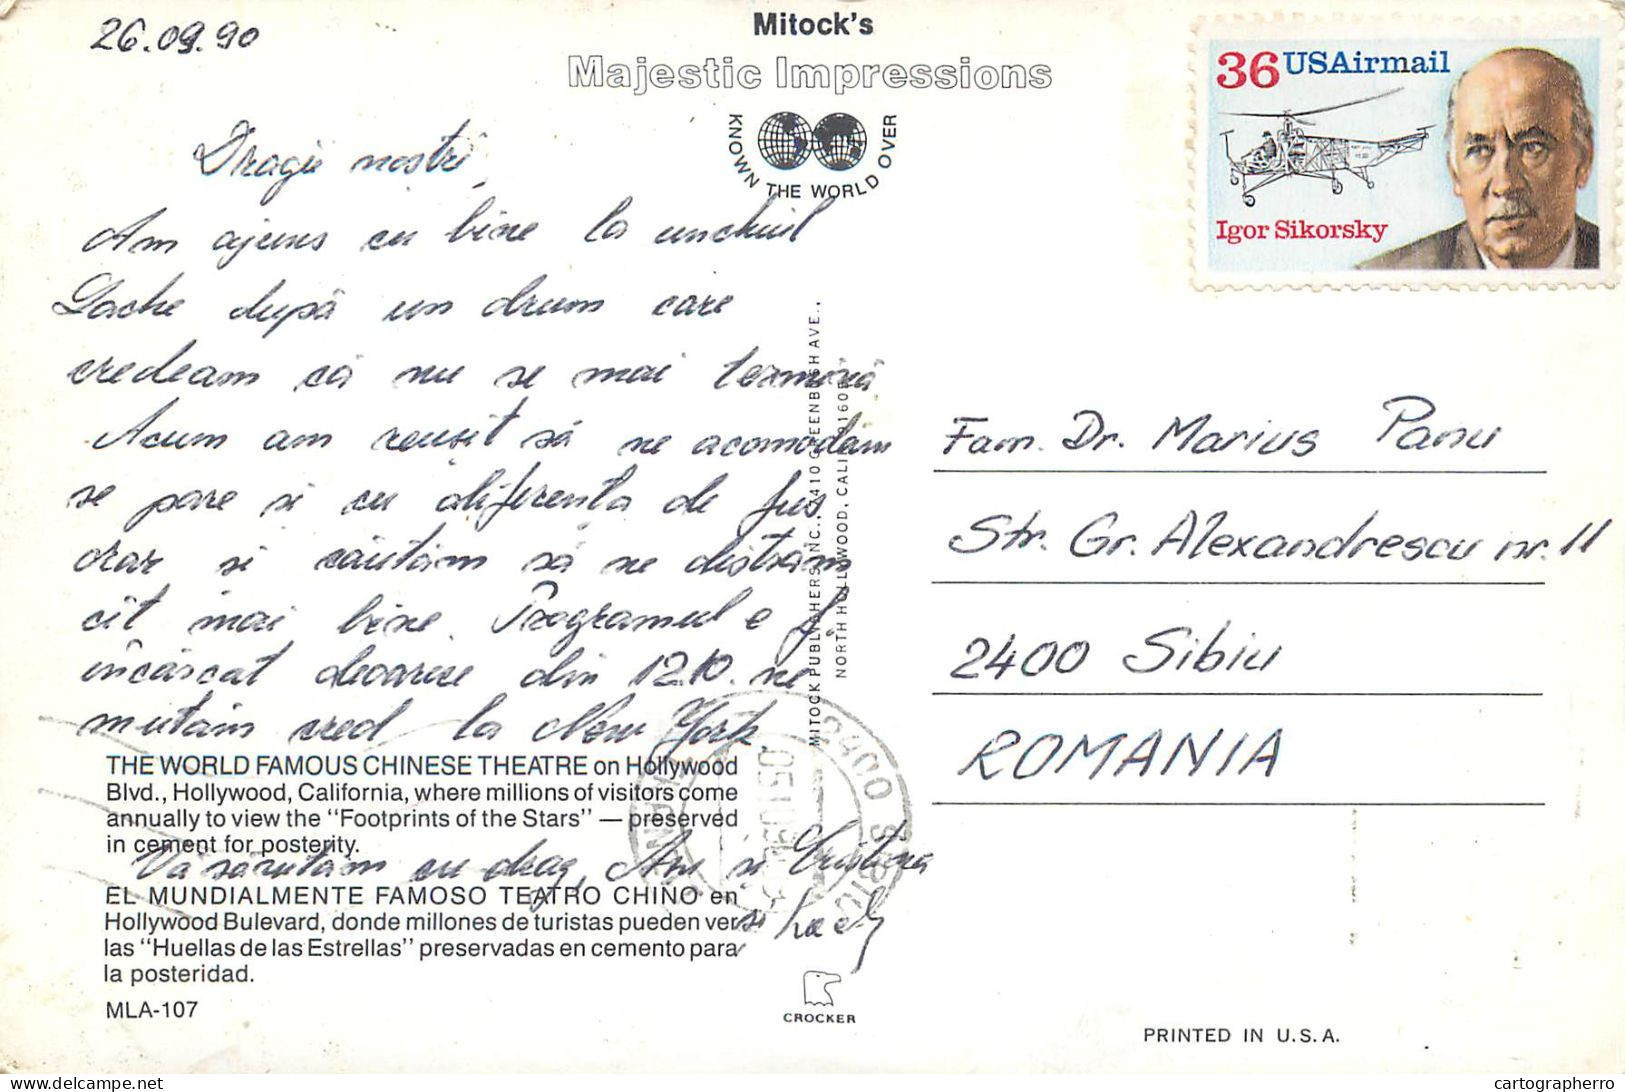 26.09.90
Mitock's
Majestic Impressions
KNOWN THE WORLD OVER
36 USAirmail
Igor Sikorsky
Dragii nostri,
Am ajuns cu bine la unchiul
Lache după un drum care
credeam că nu se mai termină
Acum am reusit să ne acomodăm
se pare si cu diferenta de fus
orar si căutăm să ne distrăm
cît mai bine. Programul e f.
încărcat deoarece din 12.10. ne
mutăm cred la New York.
THE WORLD FAMOUS CHINESE THEATRE on Hollywood
Blvd., Hollywood, California, where millions of visitors come
annually to view the "Footprints of the Stars" — preserved
in cement for posterity.
Vă sărutăm cu drag, si Cristina
EL MUNDIALMENTE FAMOSO TEATRO CHINO en
Hollywood Bulevard, donde millones de turistas pueden ver
si
las "Huellas de las Estrellas" preservadas en cemento para
la posteridad.
MLA-107
MITOCK PUBLISHERS INC., 410 GREENBUSH AVE.,
NORTH HOLLYWOOD, CALIF. 91605
2400 SIBIU
Fam. Dr. Marius Panu
Str. Gr. Alexandrescu nr. 11
2400 Sibiu
ROMANIA
CROCKER
PRINTED IN U.S.A.
cartographerro